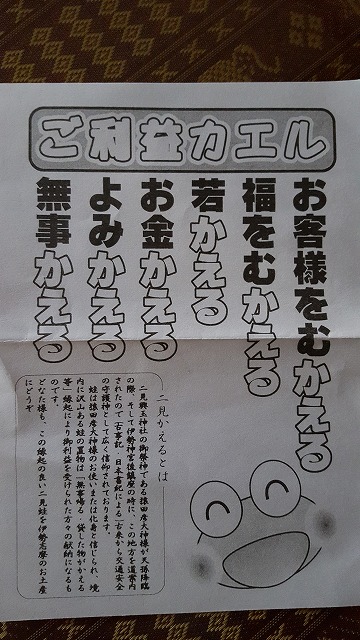 ご利益カエル
お客様をむかえる
福をむかえる
若かえる
お金かえる
よみかえる
無事かえる
二見かえるとは
二見興玉神社の御祭神である猿田彦大神様が天孫降臨
の際、そして伊勢神宮後鎮座の時に、この地方を道案内
されたので「古事記・日本書紀による」古来から交通安全
の守護神として広く信仰されております。
蛙は猿田彦大神様のお使いまたは化身と信じられ、境
内に沢山ある蛙の置物は「無事帰る・貸した物がかえる
等」縁起により御利益を受けられた方々の献納になるも
のです。
どなた様も、この縁起の良い二見蛙を伊勢志摩のお土産
にどうぞ